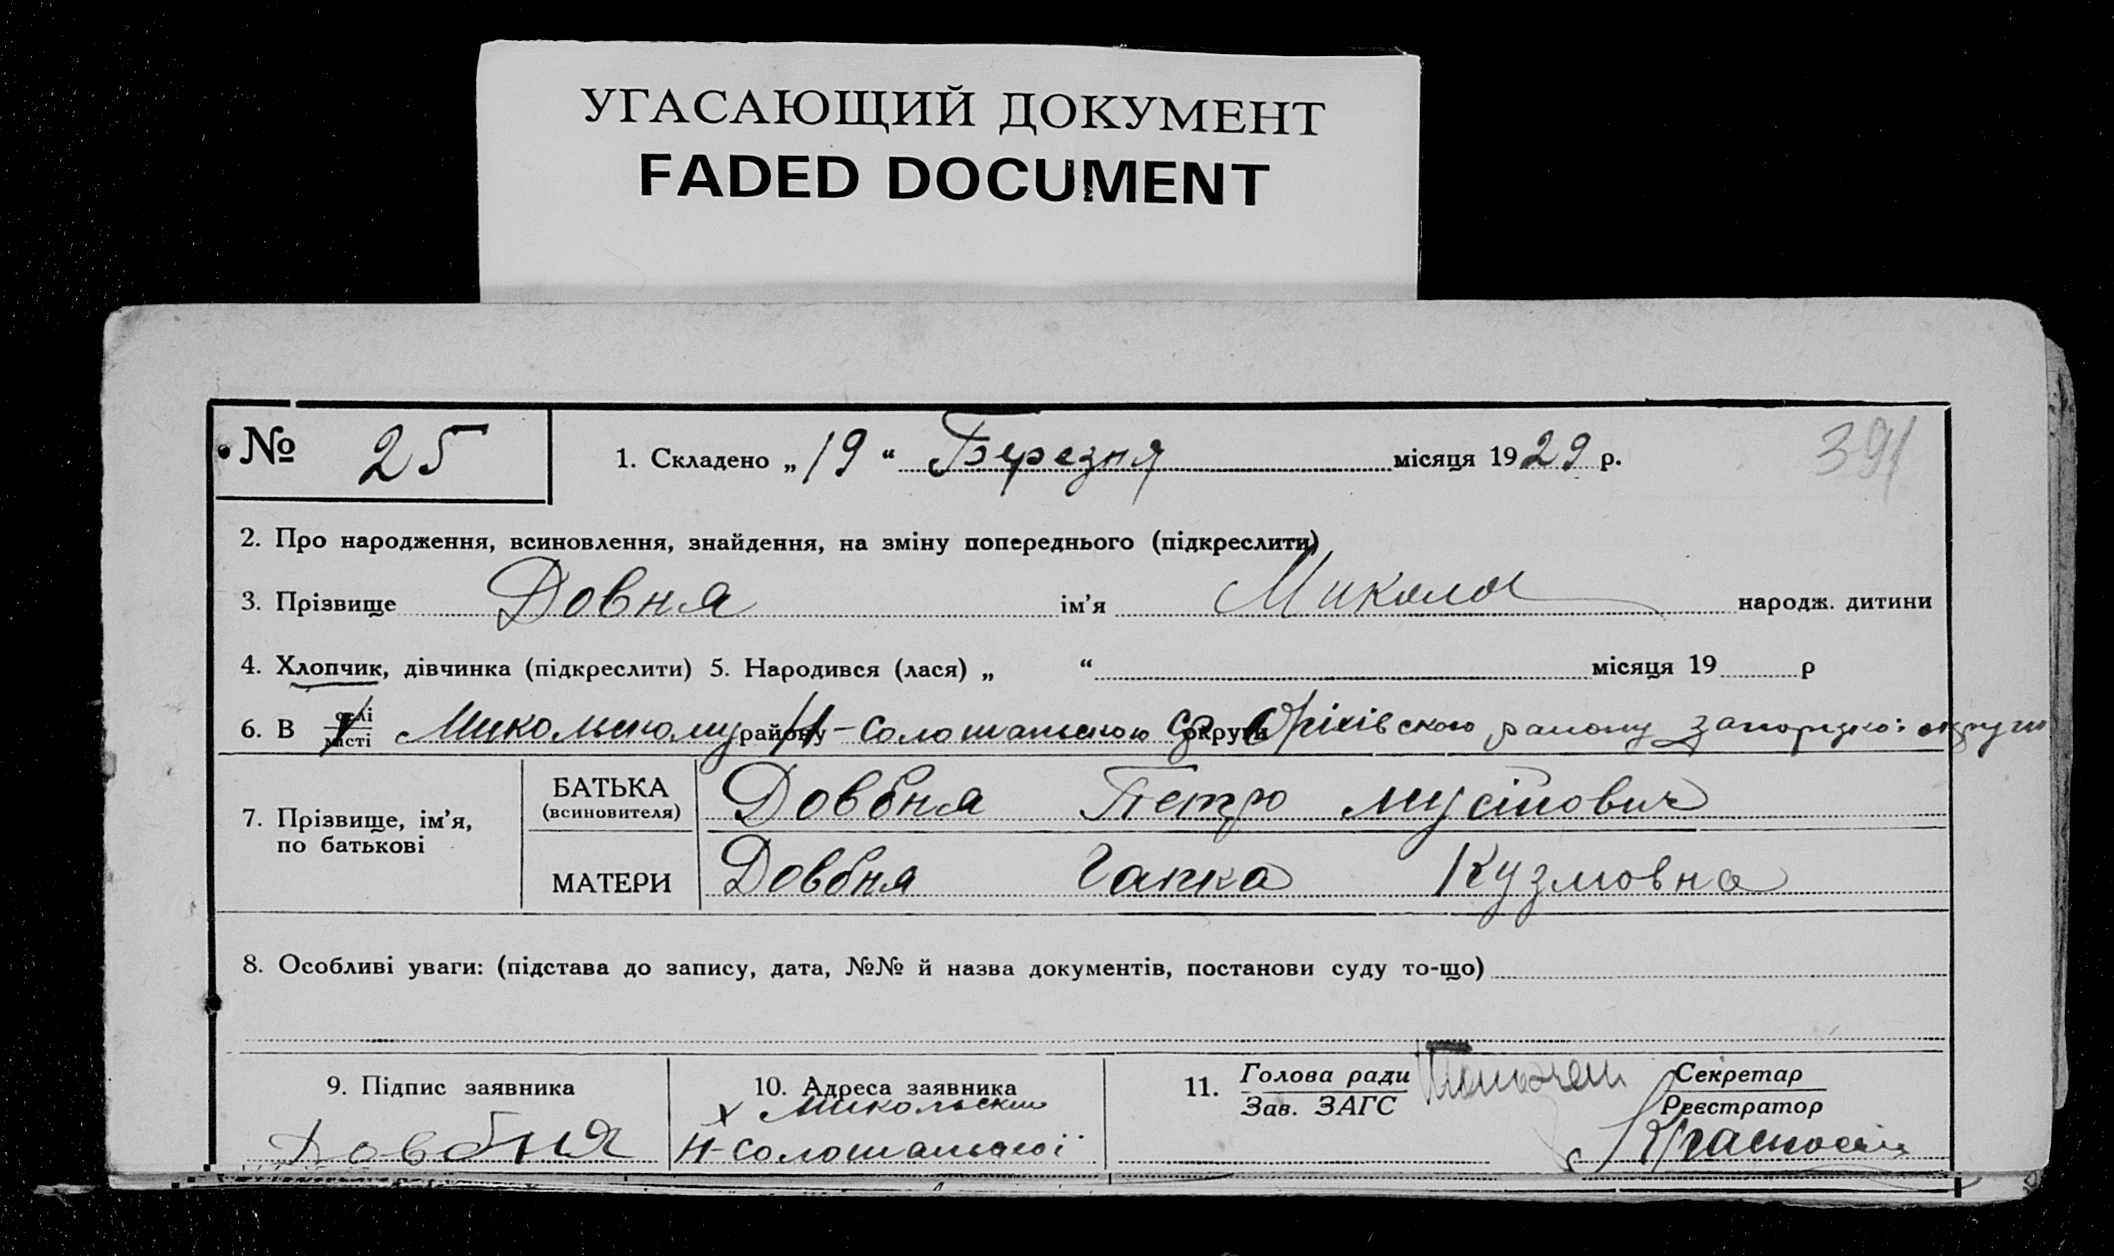 УГАСАЮЩИЙ ДОКУМЕНТ
FADED DOCUMENT
№ 25
1. Складено „ 19 “ Березня місяця 1929 р.
391
2. Про народження, всиновлення, знайдення, на зміну попереднього (підкреслити)
3. Прізвище Довня ім'я Микола народж. дитини
4. Хлопчик, дівчинка (підкреслити) 5. Народився (лася) „ “ місяця 19 р
6. В селі місті району Н-Солошанською округи Оріхівського району Запорізкої округи
7. Прізвище, ім'я, по батькові
БАТЬКА (всиновителя) Довбня Петро Мусійович
МАТЕРИ Довбня Гапка Кузмовна
8. Особливі уваги: (підстава до запису, дата, №№ й назва документів, постанови суду то-що)
9. Підпис заявника
Довбня
10. Адреса заявника
х Микольский
Н-Солошанської
11. Голова ради
Зав. ЗАГС
Секретар
Реєстратор